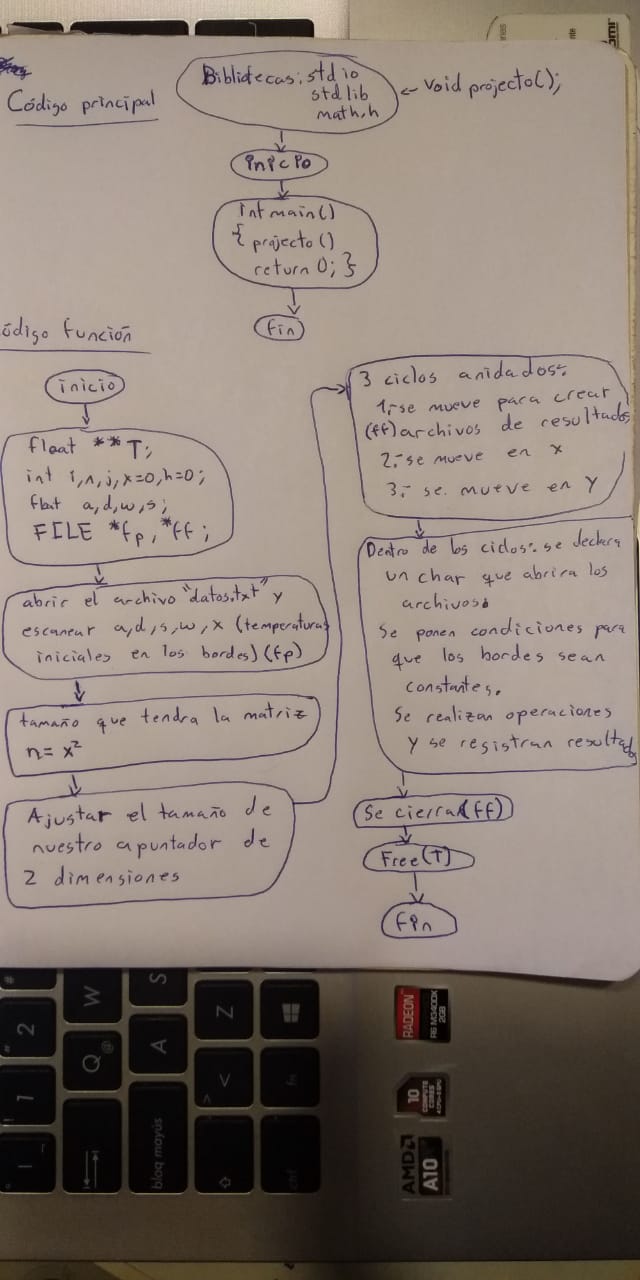 Código principal
Bibliotecas: stdio
stdlib
math.h
← void projecto();
inicio
int main()
{ projecto()
return 0; }
fin
ódigo función
inicio
float **T;
int i,n,j,x=0,h=0;
float a,d,w,s;
FILE *fp, *ff;
abrir el archivo "datos.txt" y
escanear a,d,s,w,x (temperaturas
iniciales en los bordes) (fp)
tamaño que tendra la matriz
n= x²
Ajustar el tamaño de
nuestro apuntador de
2 dimensiones
3 ciclos anidados:
1.-se mueve para crear
(ff) archivos de resultados
2.-se mueve en x
3.- se mueve en y
Dentro de los ciclos: se declara
un char que abrira los
archivos.
Se ponen condiciones para
que los bordes sean
constantes.
Se realizan operaciones
y se registran resultados
Se cierra (ff)
Free(T)
fin
2
W
S
Z
1
Q
@
A
<
>
bloq mayús
fn
ctrl
RADEON
R6 M340DX
2GB
10
COMPUTE
CORES
4 CPU+6 GPU
AMD
A10